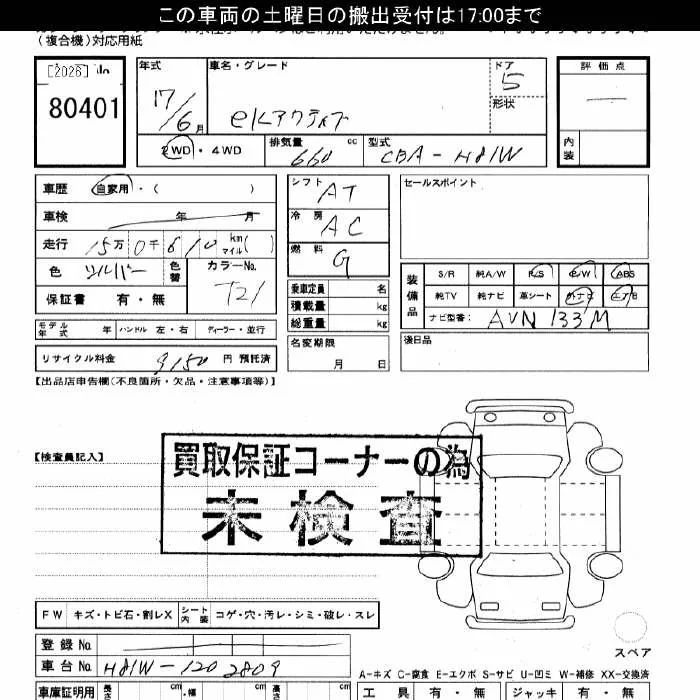 この車両の土曜日の搬出受付は17:00まで
(複合機)対応用紙
[2026] No
80401
年式
17/6月
車名・グレード
eKアクティブ
ドア
5
形状
評価点
内装
2WD・4WD
排気量
660 cc
型式
CBA-H81W
車歴 自家用・( )
車検 年 月
走行 15万0千610 km マイル( )
色 シルバー 色替
カラーNo. T21
保証書 有・無
シフト AT
冷房 AC
燃料 G
乗車定員 名
積載量 kg
総重量 kg
名変期限
月 日
セールスポイント
装備品
S/R 純A/W P/S P/W ABS
純TV 純ナビ 革シート 外ナビ
ナビ型番: AVN 133M
後日品
モデル年式 年 ハンドル 左・右 ディーラー・並行
リサイクル料金 9150 円 預託済
【出品店申告欄(不良箇所・欠品・注意事項等)】
【検査員記入】
買取保証コーナーの為
未検査
FW キズ・トビ石・割レX シート内装 コゲ・穴・汚レ・シミ・破レ・スレ
スペア
登録No.
車台No. H81W-1202809
A-キズ C-腐食 E-エクボ S-サビ U-凹ミ W-補修 XX-交換済
車庫証明用 長さ cm ・幅 cm 高さ cm
工具 有・無 ジャッキ 有・無